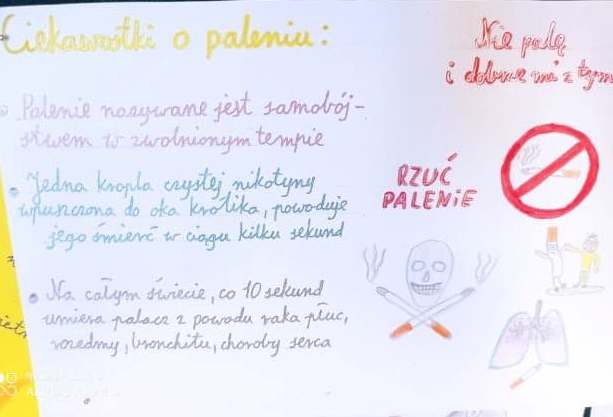 Ciekawostki o paleniu:
Palenie nazywane jest samobój-
stwem w zwolnionym tempie
Jedna kropla czystej nikotyny
wpuszczona do oka królika, powoduje
jego śmierć w ciągu kilku sekund
Na całym świecie, co 10 sekund
umiera palacz z powodu raka płuc,
rozedmy, bronchitu, choroby serca
Nie palę
i dobrze mi z tym
RZUĆ
PALENIE